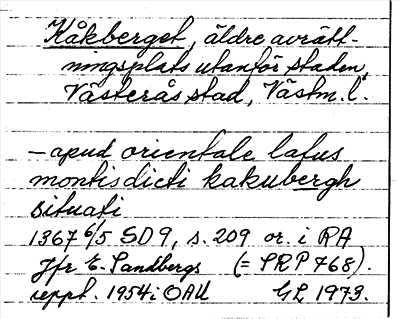 Kåkberget, äldre avrätt-
ningsplats utanför staden,
Västerås stad, Västm. l.
– apud orientale latus
montis dicti kakubergh
situati
1367 6/5 SD 9, s. 209 or. i RA
Jfr E. Sandbergs (= SRP 768).
uppt. 1954 i OAU GL 1973.